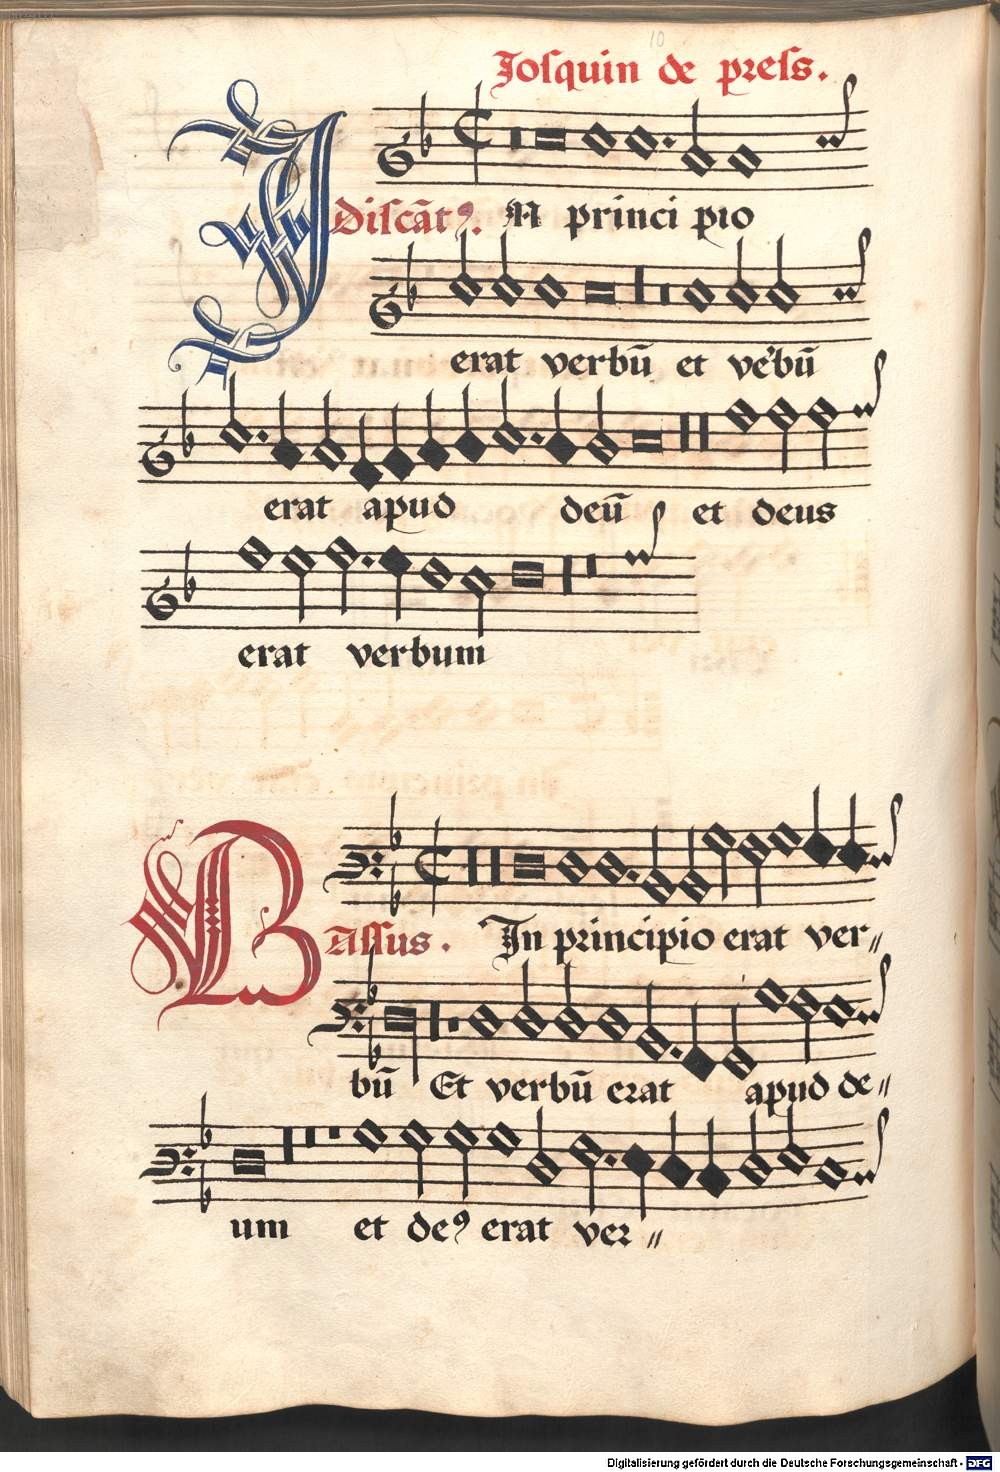 10
Josquin de press.
Discāt9. IN princi pio
erat verbū et v'ebū
erat apud deū et deus
erat verbum
Bassus. In principio erat ver〃
bū Et verbū erat apud de〃
um et de9 erat ver〃
Digitalisierung gefördert durch die Deutsche Forschungsgemeinschaft - DFG